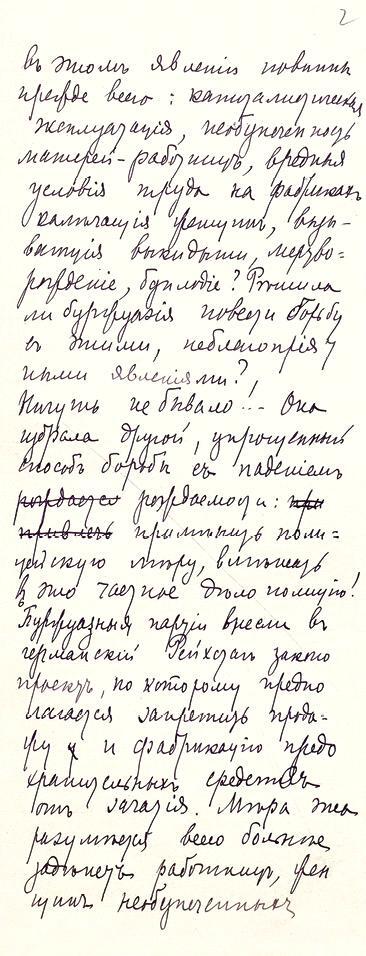 2
въ этомъ явленіи повинны
прежде всего: капиталистическая
эксплуатація, необузпеченность
матерей-работницъ, вредныя
условія труда на фабрикахъ
калѣчащія женщинъ, вызы-
вающія выкидыши, мертво-
рожденіе, безплодіе? Рѣшила
ли буржуазія повести борьбу
съ этими, неблагопріят
ными явленіями?,
Ничуть не бывало!.. Она
избрала другой, упрощенный
способъ борьбы съ паденіемъ
рождается рождаемости: при
привлечь примѣнить поли-
цейскую мѣру, вмѣшать
въ это частное дѣло полицію!
Буржуазныя партіи внесли въ
германскій Рейхстагъ законо
проектъ, по которому предпо
лагается запретить прода-
жу и фабрикацію предо
хранительныхъ средствъ
отъ зачатія. Мѣра эта
разумѣется всего больнѣе
задѣнетъ работницъ, жен
щинъ необезпеченныхъ